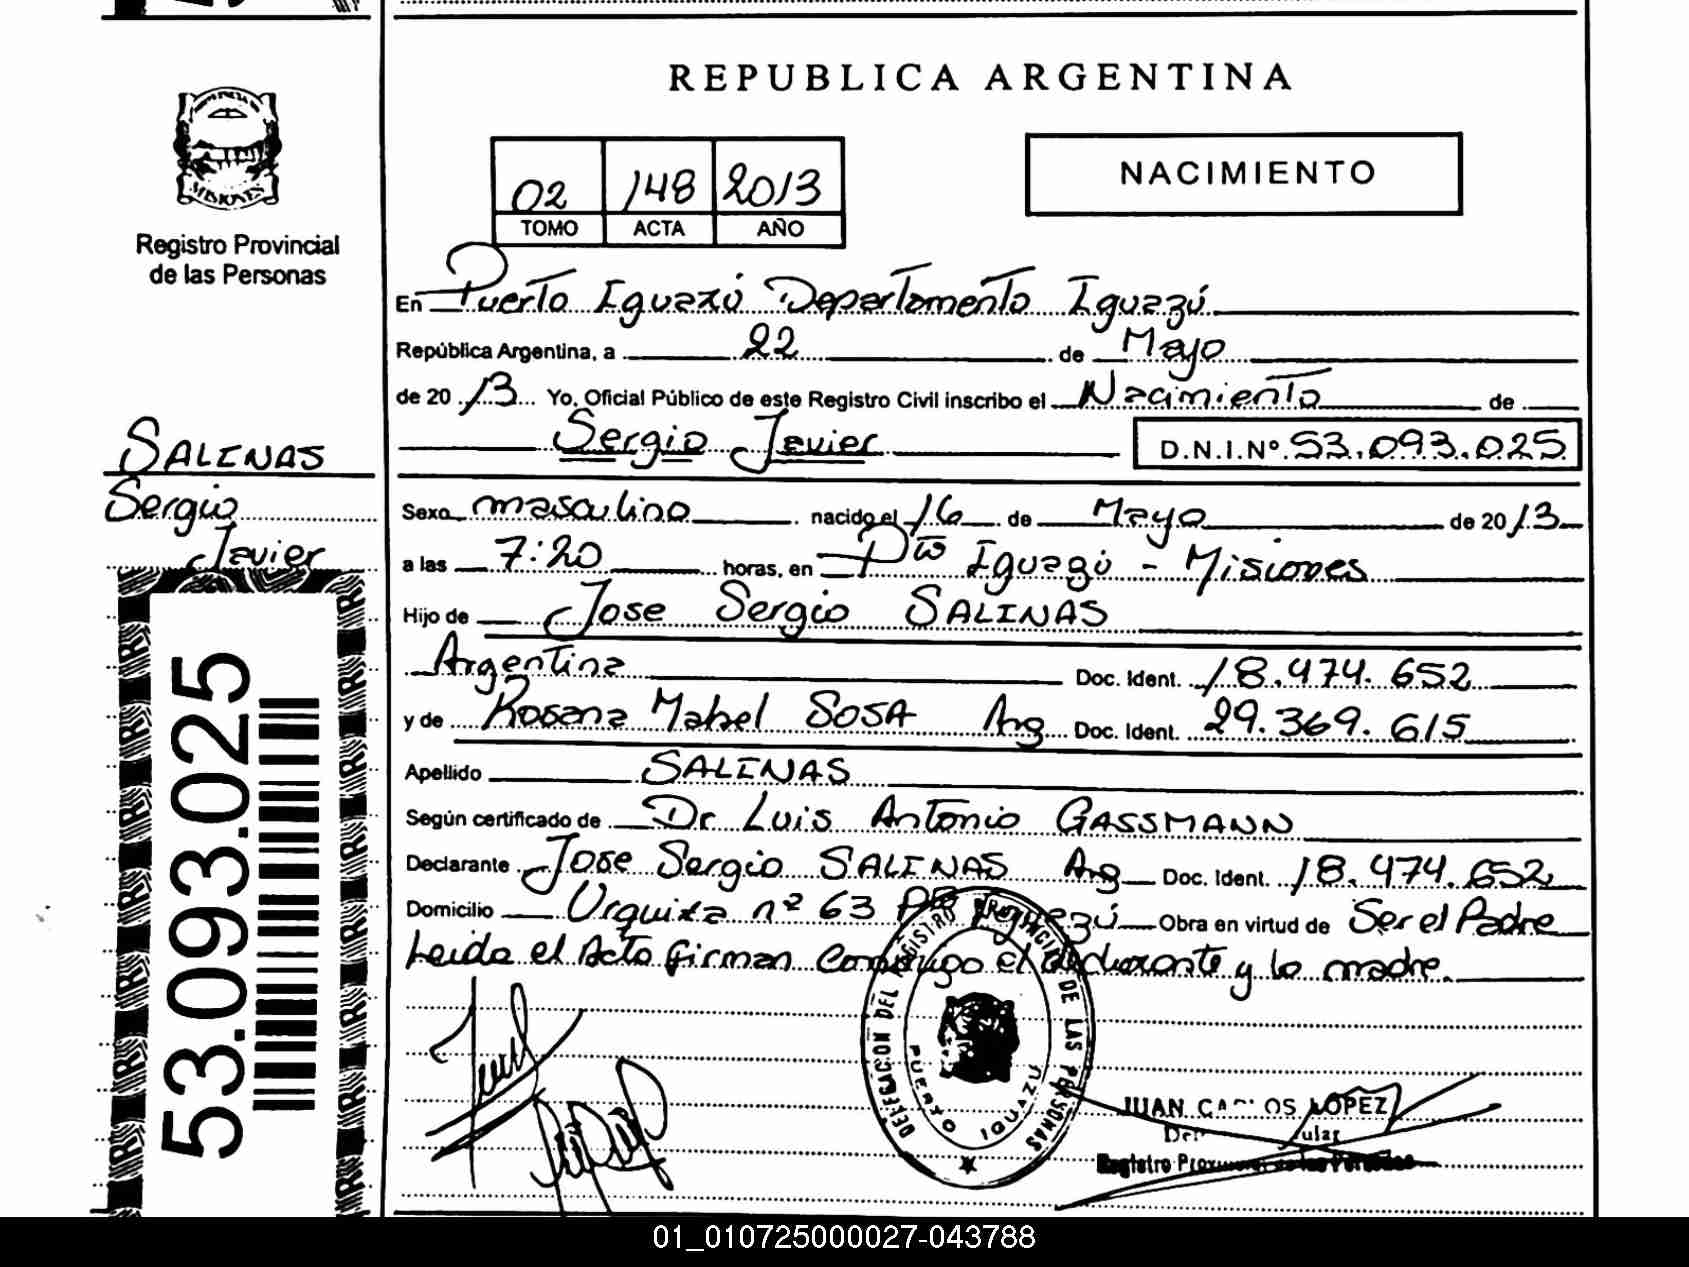 REPUBLICA ARGENTINA
PROVINCIA DE
MISIONES
Registro Provincial
de las Personas
02 148 2013
TOMO ACTA AÑO
NACIMIENTO
En Puerto Iguazú Departamento Iguazú
República Argentina, a 22 de Mayo
de 2013 Yo, Oficial Público de este Registro Civil inscribo el Nacimiento de
Sergio Javier D.N.I.Nº 53.093.025
SALINAS
Sergio
Javier
53.093.025
Sexo masculino nacido el 16 de Mayo de 2013
a las 7:20 horas, en Pto Iguazú - Misiones
Hijo de Jose Sergio SALINAS
Argentina Doc. Ident. 18.474.652
y de Rosana Mabel SOSA Arg Doc. Ident. 29.369.615
Apellido SALINAS
Según certificado de Dr Luis Antonio GASSMANN
Declarante Jose Sergio SALINAS Arg Doc. Ident. 18.474.652
Domicilio Urquiza nº 63 Pto Iguazú Obra en virtud de Ser el Padre
Leida el Acta firman conmigo el declarante y la madre.
DELEGACION DEL REGISTRO PROVINCIAL DE LAS PERSONAS
PUERTO IGUAZU
JUAN CARLOS LOPEZ
Registro Provincial de las Personas
01_010725000027-043788